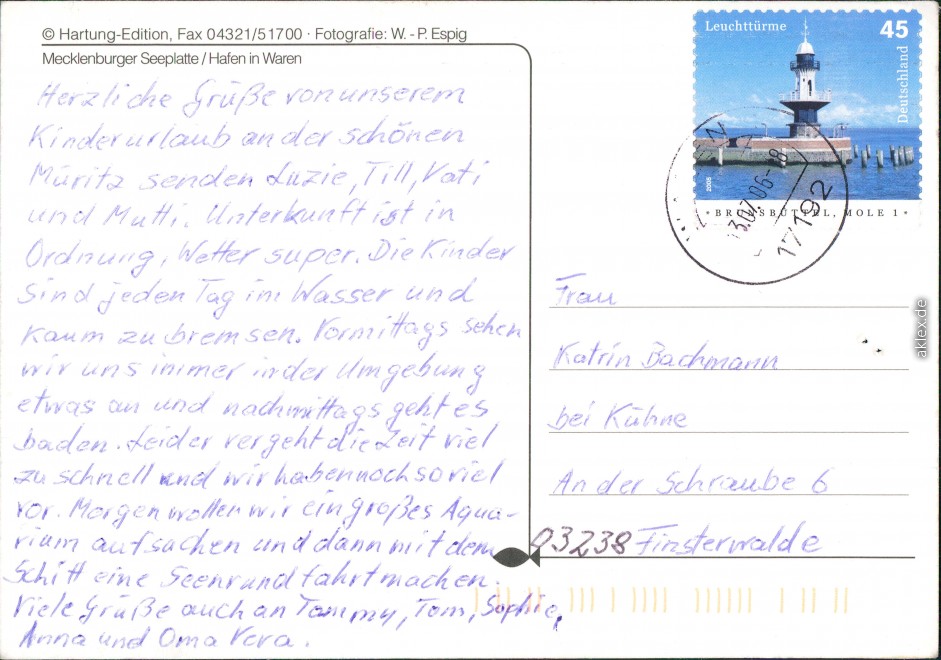 © Hartung-Edition, Fax 04321/51700 · Fotografie: W. - P. Espig
Mecklenburger Seeplatte / Hafen in Waren
Herzliche Grüße von unserem
Kinderurlaub an der schönen
Müritz senden Luzie, Till, Kati
und Mutti. Unterkunft ist in
Ordnung, Wetter super. Die Kinder
sind jeden Tag im Wasser und
kaum zu bremsen. Vormittags sehen
wir uns immer in der Umgebung
etwas an und nachmittags geht es
baden. Leider vergeht die Zeit viel
zu schnell und wir haben noch so viel
vor. Morgen wollen wir ein großes Aqua-
rium aufsuchen und dann mit dem
Schiff eine Seenrundfahrt machen.
Viele Grüße auch an Tommy, Tom, Sophie,
Anna und Oma Vera.
Leuchttürme
45
Deutschland
2005
* BRUNSBÜTTEL, MOLE 1 *
3.07.06-8
17192
Frau
Katrin Bachmann
bei Kühne
An der Schraube 6
03238 Finsterwalde
aklex.de